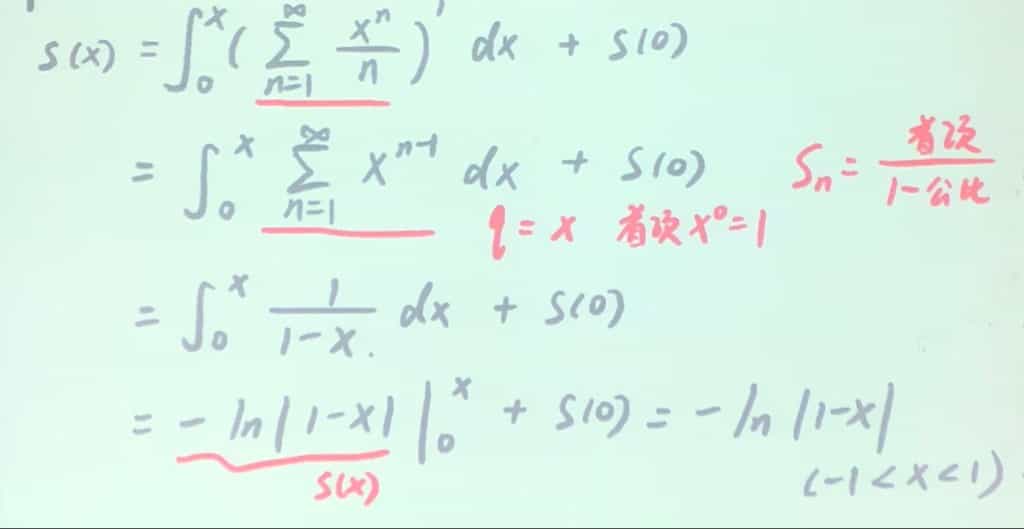 S(x) = ∫₀ˣ ( ∑_{n=1}^{∞} xⁿ/n )′ dx + S(0)
= ∫₀ˣ ∑_{n=1}^{∞} xⁿ⁻¹ dx + S(0)
Sₙ = 首项/(1-公比)
q = x 首项x⁰=1
= ∫₀ˣ 1/(1-x) dx + S(0)
= -ln|1-x| |₀ˣ + S(0) = -ln|1-x|
S(x)
(-1<x<1)